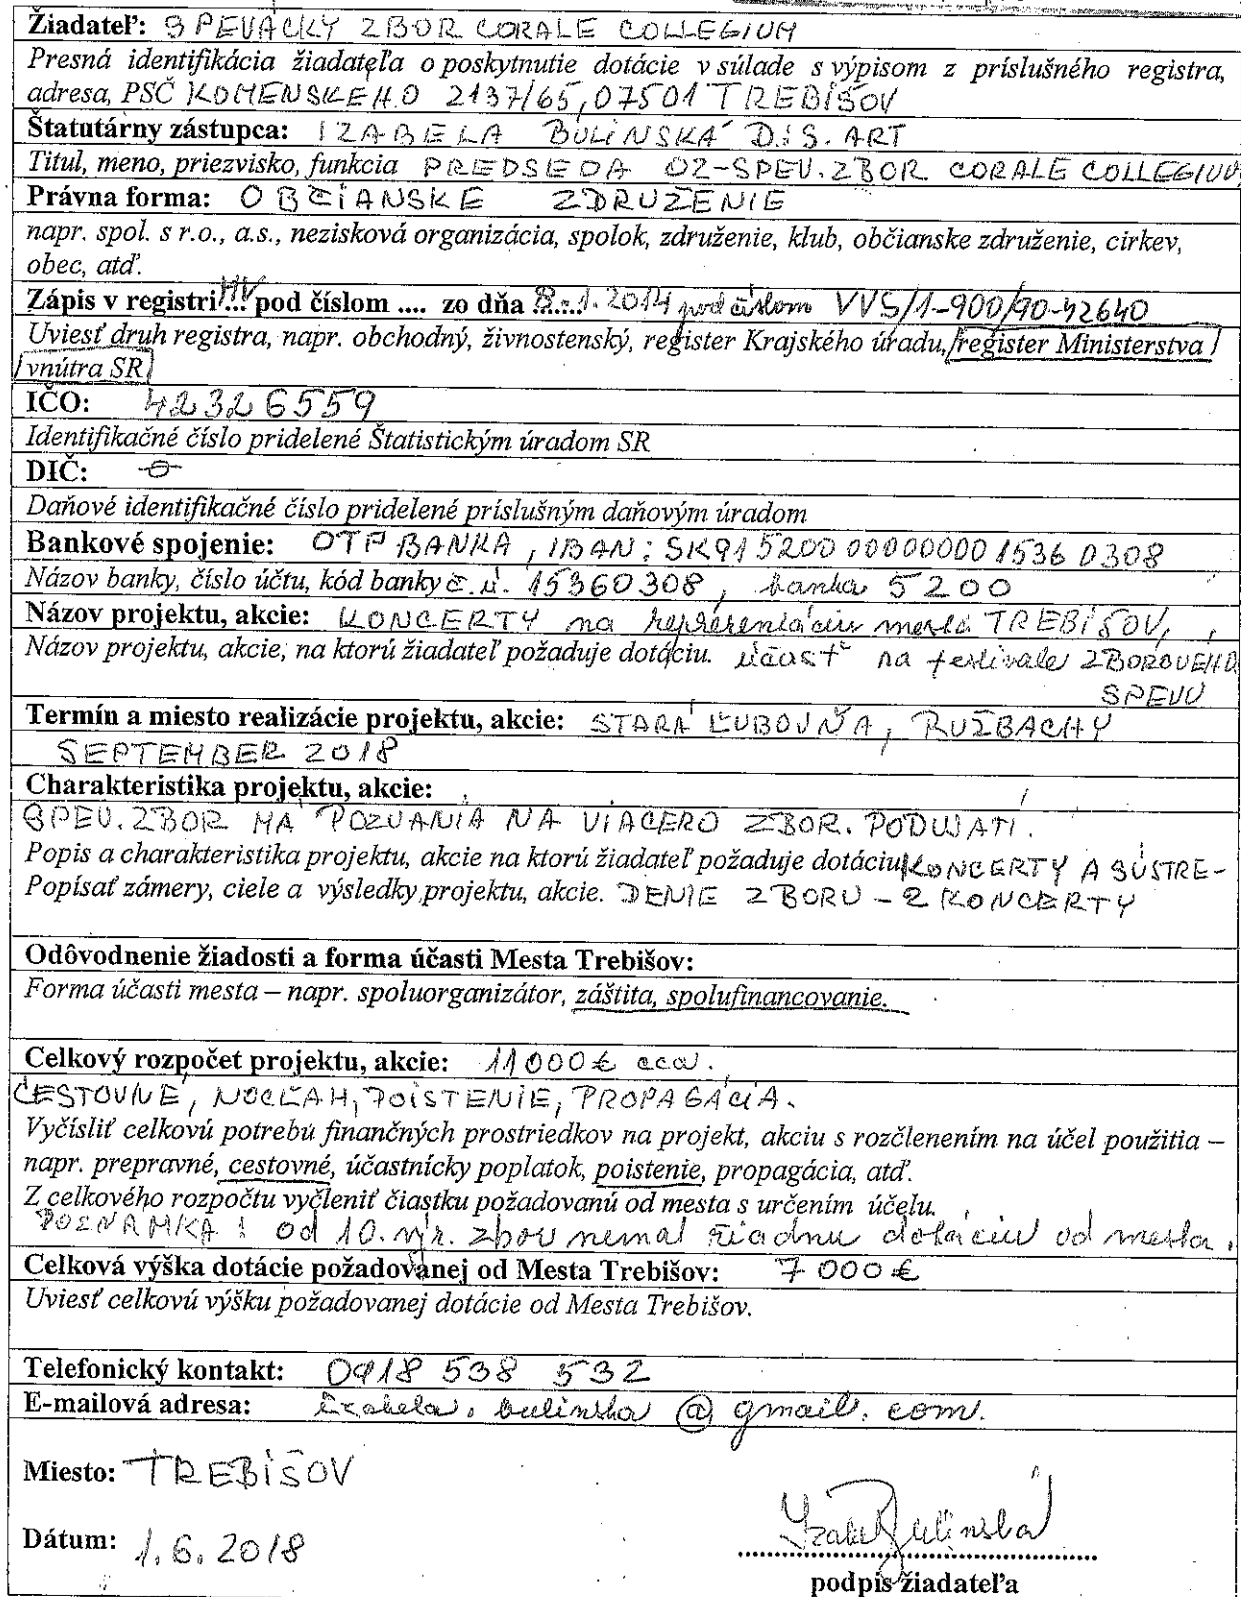 Žiadateľ: SPEVÁCKY ZBOR CORALE COLLEGIUM
Presná identifikácia žiadateľa o poskytnutie dotácie v súlade s výpisom z príslušného registra,
adresa, PSČ KOMENSKEHO 2137/65, 07501 TREBIŠOV
Štatutárny zástupca: IZABELA BULINSKÁ D.i.S. ART
Titul, meno, priezvisko, funkcia PREDSEDA OZ-SPEV. ZBOR CORALE COLLEGIUM
Právna forma: OBČIANSKE ZDRUŽENIE
napr. spol. s r.o., a.s., nezisková organizácia, spolok, združenie, klub, občianske združenie, cirkev,
obec, atď.
Zápis v registri MV... pod číslom .... zo dňa 8.1.2014 pod číslom VVS/1-900/90-42640
Uviesť druh registra, napr. obchodný, živnostenský, register Krajského úradu, register Ministerstva
vnútra SR
IČO: 42326559
Identifikačné číslo pridelené Štatistickým úradom SR
DIČ: -0-
Daňové identifikačné číslo pridelené príslušným daňovým úradom
Bankové spojenie: OTP BANKA, IBAN: SK91 5200 0000 0000 1536 0308
Názov banky, číslo účtu, kód banky č.ú. 15360308, banka 5200
Názov projektu, akcie: KONCERTY na reprezentáciu mesta TREBIŠOV,
Názov projektu, akcie, na ktorú žiadateľ požaduje dotáciu. účasť na festivale ZBOROVEHO
SPEVU
Termín a miesto realizácie projektu, akcie: STARÁ ĽUBOVŇA, RUŽBACHY
SEPTEMBER 2018
Charakteristika projektu, akcie:
SPEV. ZBOR MÁ POZVANIA NA VIACERO ZBOR. PODUJATÍ.
Popis a charakteristika projektu, akcie na ktorú žiadateľ požaduje dotáciu KONCERTY A SÚSTRE-
Popísať zámery, ciele a výsledky projektu, akcie. DENIE ZBORU - 2 KONCERTY
Odôvodnenie žiadosti a forma účasti Mesta Trebišov:
Forma účasti mesta – napr. spoluorganizátor, záštita, spolufinancovanie.
Celkový rozpočet projektu, akcie: 11000 € cca.
CESTOVNÉ, NOCĽAH, POISTENIE, PROPAGÁCIA.
Vyčísliť celkovú potrebu finančných prostriedkov na projekt, akciu s rozčlenením na účel použitia –
napr. prepravné, cestovné, účastnícky poplatok, poistenie, propagácia, atď.
Z celkového rozpočtu vyčleniť čiastku požadovanú od mesta s určením účelu.
POZNÁMKA: od 10. výr. zbor nemal žiadnu dotáciu od mesta.
Celková výška dotácie požadovanej od Mesta Trebišov: 7 000 €
Uviesť celkovú výšku požadovanej dotácie od Mesta Trebišov.
Telefonický kontakt: 0918 538 532
E-mailová adresa: izabela.bulinska@gmail.com.
Miesto: TREBIŠOV
Izabela Bulinská
Dátum: 1.6.2018
podpis žiadateľa